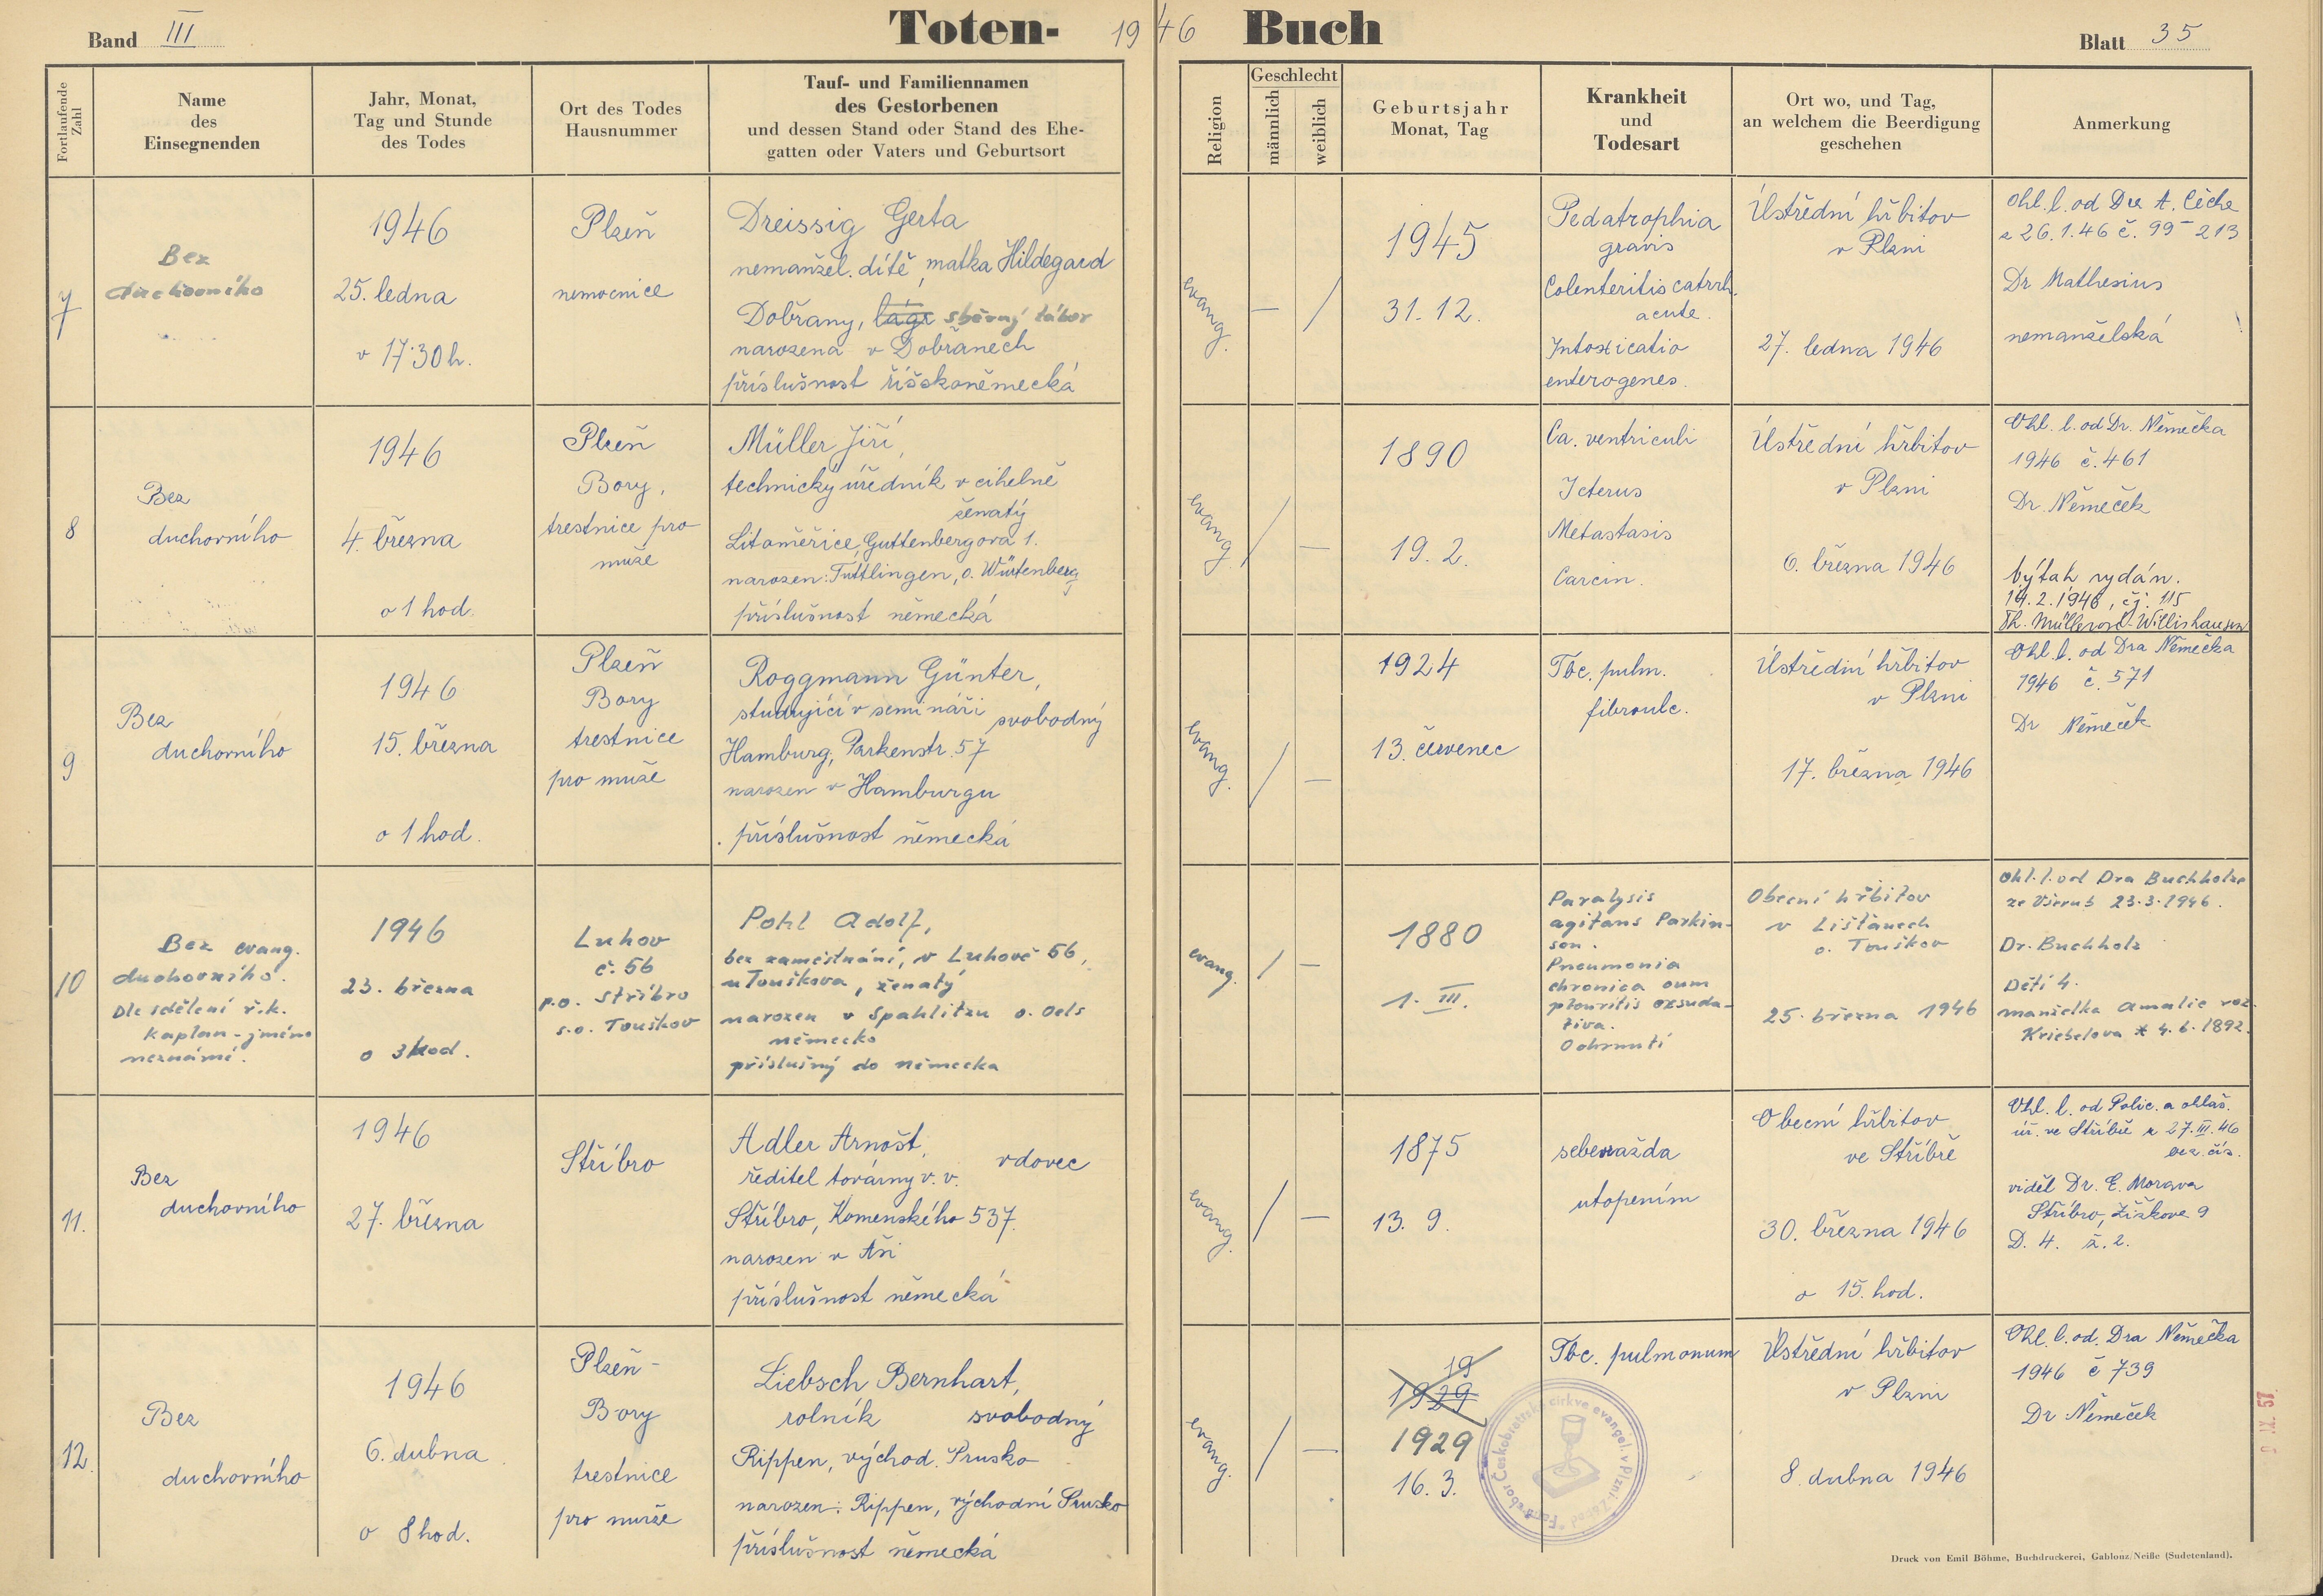 Band III
Toten- 1946 Buch
Blatt 35
Fortlaufende Zahl
Name
des
Einsegnenden
Jahr, Monat,
Tag und Stunde
des Todes
Ort des Todes
Hausnummer
Tauf- und Familiennamen
des Gestorbenen
und dessen Stand oder Stand des Ehe-
gatten oder Vaters und Geburtsort
Religion
Geschlecht
männlich
weiblich
Geburtsjahr
Monat, Tag
Krankheit
und
Todesart
Ort wo, und Tag,
an welchem die Beerdigung
geschehen
Anmerkung
7
Bez
duchovního
1946
25. ledna
v 17.30 h.
Plzeň
nemocnice
Dreissig Gerta
nemanžel. dítě, matka Hildegard
Dobřany, lágr sběrný tábor
narozena v Dobřanech
příslušnost říšskoněmecká
evang.
— /
1945
31. 12.
Pedatrophia
gravis
Colenteritis catrrh.
acute.
Intoxicatio
enterogenes.
Ústřední hřbitov
v Plzni
27. ledna 1946
Ohl. l. od Dra A. Čecha
z 26.1.46 č. 99-213
Dr Mathesius
nemanželská
8
Bez
duchovního
1946
4. března
o 1 hod.
Plzeň
Bory,
trestnice pro
muže
Müller Jiří,
technický úředník v cihelně
ženatý
Litoměřice, Guttenbergova 1.
narozen: Tuttlingen, o. Würtenberg
příslušnost německá
evang.
/ —
1890
19. 2.
Ca. ventriculi
Icterus
Metastasis
Carcin.
Ústřední hřbitov
v Plzni
6. března 1946
Ohl. l. od Dr. Němečka
1946 č. 461
Dr. Němeček
výtah vydán.
14.2.1948, čj. 115
Th. Müllerová-Willishausen
9
Bez
duchovního
1946
15. března
o 1 hod.
Plzeň
Bory
trestnice
pro muže
Roggmann Günter,
studující v semináři svobodný
Hamburg, Parkenstr. 57
narozen v Hamburgu
příslušnost německá
evang.
/ —
1924
13. červenec
Tbc. pulm.
fibroulc.
Ústřední hřbitov
v Plzni
17. března 1946
Ohl. l. od Dra Němečka
1946 č. 571
Dr Němeček
10
Bez evang.
duchovního.
Dle sdělení ř.k.
kaplan - jméno
neznámé.
1946
23. března
o 3 hod.
Luhov
č. 56
p.o. Stříbro
s.o. Touškov
Pohl Adolf,
bez zaměstnání, v Luhově 56,
u Touškova, ženatý
narozen v Spahlitzu o. Oels
německo
příslušný do německa
evang.
/ —
1880
1. III.
Paralysis
agitans Parkin-
son.
Pneumonia
chronica cum
pleuritis exsuda-
tiva.
Ochrnutí
Obecní hřbitov
v Lišťanech
o. Touškov
25. března 1946
Ohl. l. od Dra Buchholze
ze Všerub 23.3.1946.
Dr. Buchholz
Dětí 4.
manželka Amalie roz.
Kriebelova * 4.6.1892.
11.
Bez
duchovního
1946
27. března
Stříbro
Adler Arnošt,
ředitel továrny v. v. vdovec
Stříbro, Komenského 537.
narozen v Aši
příslušnost německá
evang.
/ —
1875
13. 9.
sebevražda
utopením
Obecní hřbitov
ve Stříbře
30. března 1946
o 15. hod.
Ohl. l. od Polic. a ohlaš.
úř. ve Stříbře z 27.III.46
bez čís.
viděl Dr. E. Morava
Stříbro, Žižkova 9
D. 4. ž. 2.
12.
Bez
duchovního
1946
6. dubna
o 8 hod.
Plzeň-
Bory
trestnice
pro muže
Liebsch Bernhart,
rolník svobodný
Rippen, východ. Prusko
narozen: Rippen, východní Prusko
příslušnost německá
evang.
/ —
19
1929
1929
16. 3.
Tbc. pulmonum
Ústřední hřbitov
v Plzni
8. dubna 1946
Ohl. l. od. Dra Němečka
1946 č 739
Dr Němeček
Druck von Emil Böhme, Buchdruckerei, Gablonz/Neiße (Sudetenland).